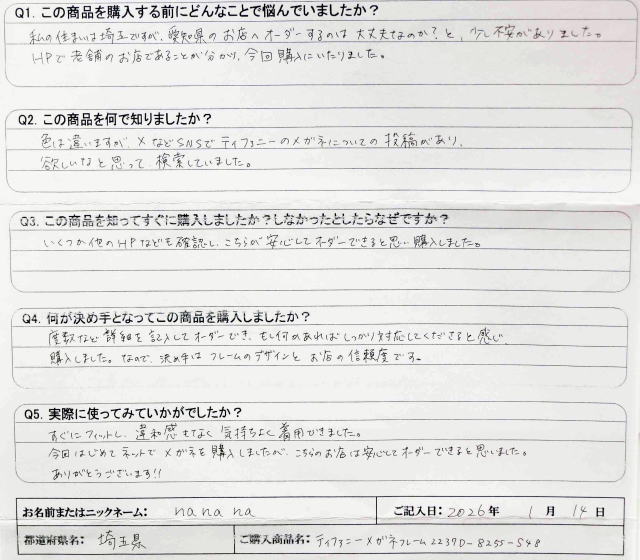 Q1. この商品を購入する前にどんなことで悩んでいましたか？
私の住まいは埼玉ですが、愛知県のお店へオーダーするのは大丈夫なのか？と、少し不安がありました。
HPで老舗のお店であることが分かり、今回購入にいたりました。
Q2. この商品を何で知りましたか？
色は違いますが、XなどSNSでティファニーのメガネについての投稿があり、
欲しいなと思って、検索していました。
Q3. この商品を知ってすぐに購入しましたか？しなかったとしたらなぜですか？
いくつか他のHPなども確認し、こちらが安心してオーダーできると思い購入しました。
Q4. 何が決め手となってこの商品を購入しましたか？
度数など詳細を記入してオーダーでき、もし何かあればしっかり対応してくださると感じ、
購入しました。なので、決め手はフレームのデザインとお店の信頼度です。
Q5. 実際に使ってみていかがでしたか？
すぐにフィットし、違和感もなく気持ちよく着用できました。
今回はじめてネットでメガネを購入しましたが、こちらのお店は安心してオーダーできると思いました。
ありがとうございます!!
お名前またはニックネーム： nanana ご記入日：2026年 1月 14日
都道府県名： 埼玉県 ご購入商品名：ティファニーメガネフレーム2237D-8255-S48